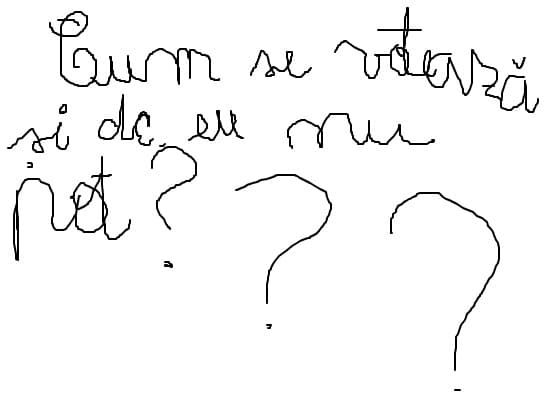 Cum se vtează
și de eu nu
pot? ? ?